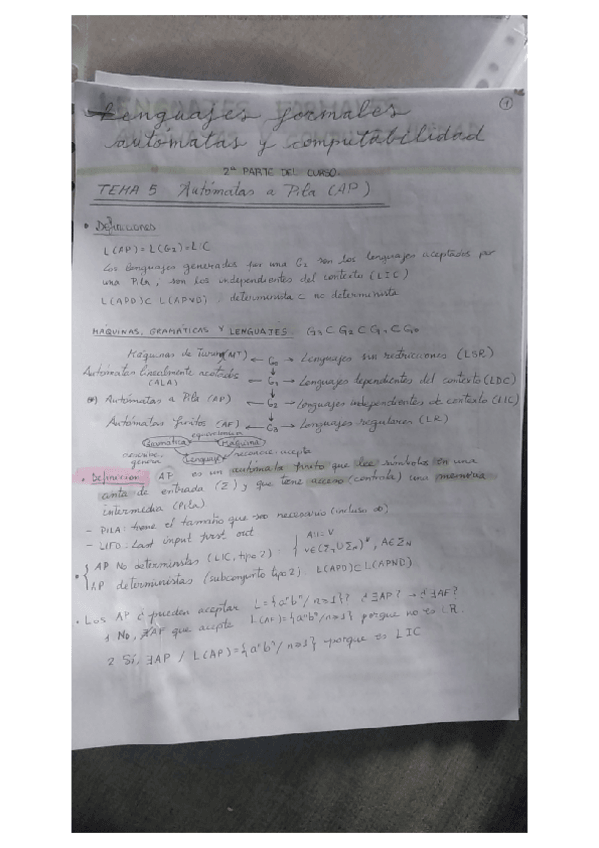 Lenguajes formales
autómatas y computabilidad
1
2ª PARTE DEL CURSO
TEMA 5 Autómatas a Pila (AP)
• DEFINICIONES
L(AP) = L(G2) = LIC
Los lenguajes generados por una G2 son los lenguajes aceptados por
una Pila, son los independientes del contexto (LIC)
L(APD) ⊂ L(APND) determinista ⊂ no determinista
MÁQUINAS, GRAMÁTICAS Y LENGUAJES G3 ⊂ G2 ⊂ G1 ⊂ G0
Máquinas de Turing (MT) ← G0 → Lenguajes sin restricciones (LSR)
Autómatas linealmente acotados (ALA) ← G1 → Lenguajes dependientes del contexto (LDC)
Autómatas a Pila (AP) ← G2 → Lenguajes independientes de contexto (LIC)
Autómatas finitos (AF) ← G3 → Lenguajes regulares (LR)
equivalencia
Gramática Máquina
describe, genera Lenguaje reconoce, acepta
• Definición: AP es un autómata finito que lee símbolos en una
cinta de entrada (Σ), y que tiene acceso (controla) una memoria
intermedia (Pila)
- PILA: tiene el tamaño que sea necesario (incluso ∞)
- LIFO: Last input first out
• AP No deterministas (LIC, tipo 2): A::=V
V∈(ΣT∪ΣN)*, A∈ΣN
AP deterministas (subconjunto tipo 2) L(APD)⊂L(APND)
• Los AP ¿pueden aceptar L={aⁿbⁿ/n≥1}? ¿∃AP? → ¿∃AF?
1 No, ∄AF que acepte L(AF)={aⁿbⁿ/n≥1} porque no es LR.
2 Sí, ∃AP / L(AP)={aⁿbⁿ/n≥1} porque es LIC